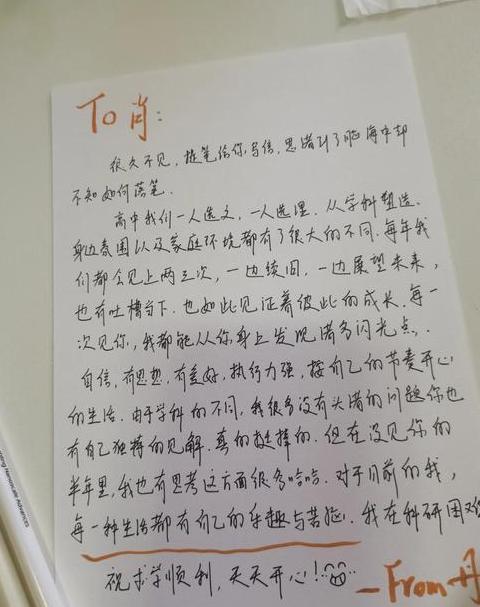 To 肖：
很久不见，提笔给你写信，思绪到了脑海中却
不知如何落笔．
高中我们一人选文，一人选理．从学科塑造、
身边氛围以及家庭环境都有了很大的不同．每年我
们都会见上两三次，一边续旧，一边展望未来，
也有吐槽当下．也如此见证着彼此的成长．每一
次见你，我都能从你身上发现诸多闪光点．
自信，有思想，有美好，执行力强，按自己的节奏开心
的生活．由于学科的不同，我很多没有头绪的问题你也
有自己独特的见解．真的挺棒的．但在没见你的
半年里，我也有思考这方面很多哈哈．对于目前的我，
每一种生活都有自己的乐趣与苦恼．我在科研困难
祝求学顺利，天天开心！
—From 丹